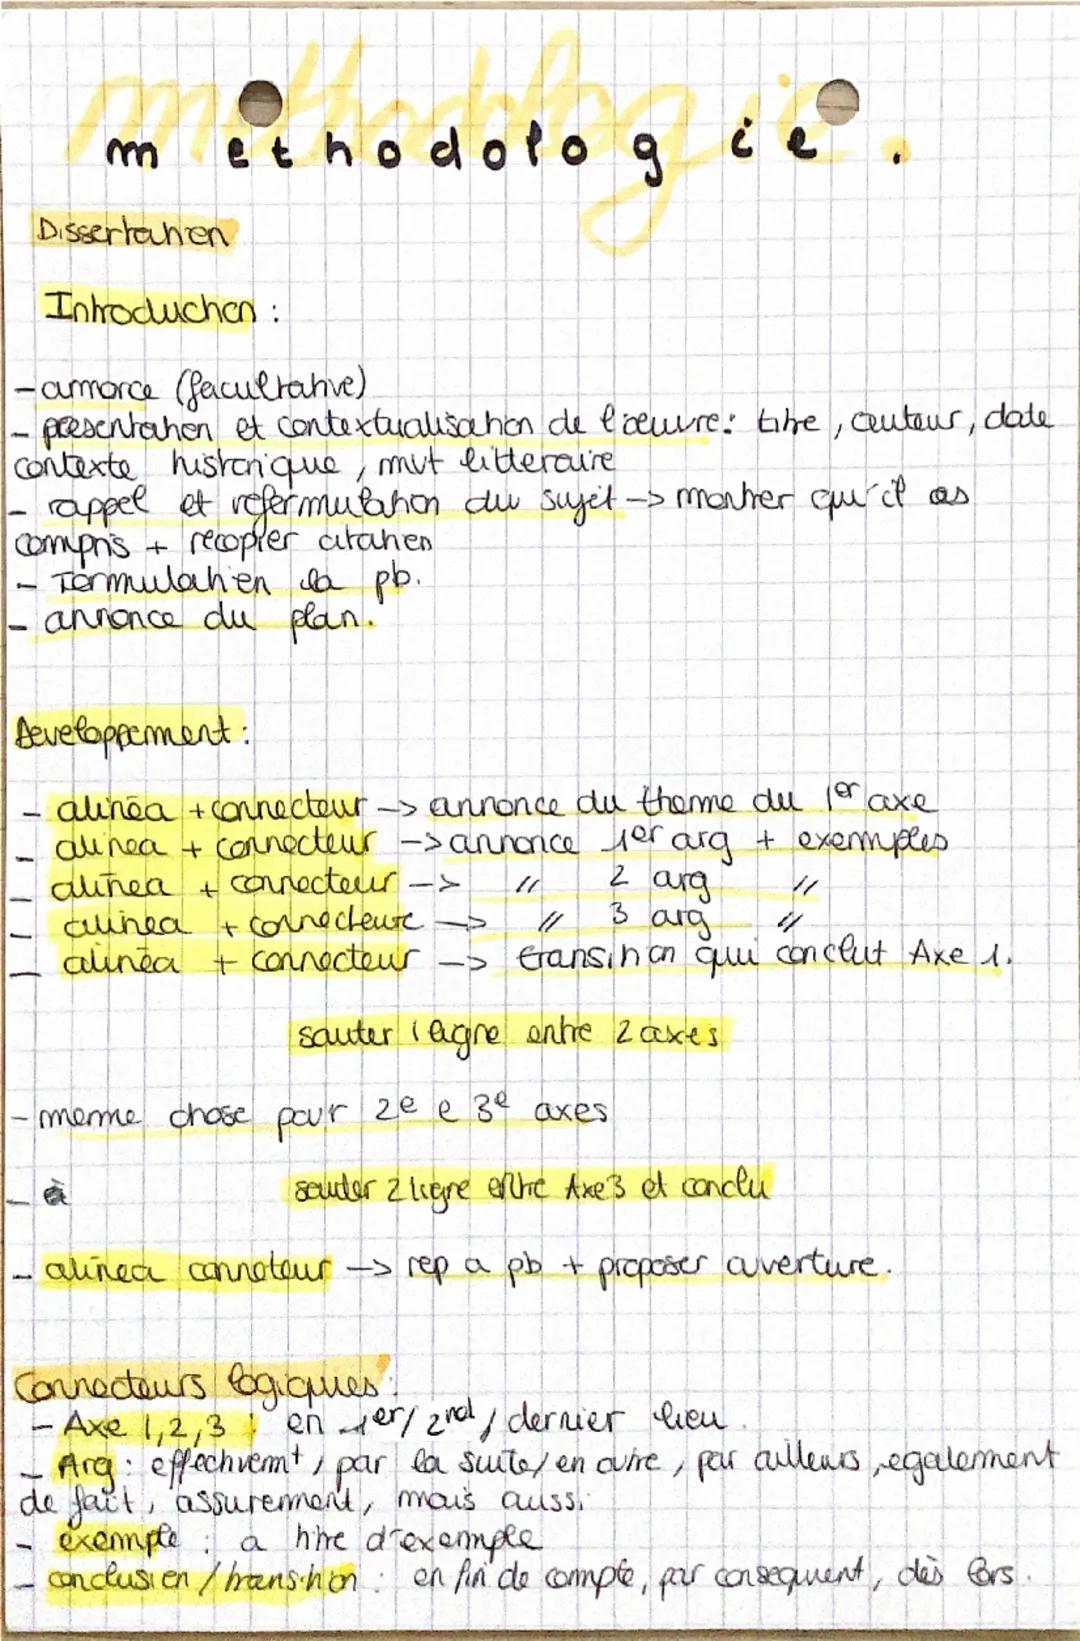 methodologie
methodologie.
Dissertation
Introduction :
- amorce (facultative)
- presentation et contextualisation de l'oeuvre: titre, auteur, date
contexte historique, mvt litteraire
- rappel et reformulation du sujet -> montrer qu'il as
compris + recopier citation
- Formulation la pb.
- annonce du plan.
Developpement :
- alinéa + connecteur -> annonce du theme du 1er axe
- alinea + connecteur -> annonce 1er arg + exemples
- alinea + connecteur -> // 2 arg //
- alinea + connecteur -> // 3 arg //
- alinéa + connecteur -> transition qui conclut Axe 1.
sauter 1 ligne entre 2 axes
- meme chose pour 2e e 3e axes
- à
sauter 2 ligne entre Axe 3 et conclu
- alinea connoteur -> rep a pb + proposer ouverture.
Connecteurs logiques :
- Axe 1,2,3 : en 1er/ 2nd/ dernier lieu
- Arg : effectivemt, par la suite/ en outre, par ailleurs, egalement
de fait, assurement, mais aussi
- exemple : a titre d'exemple
- conclusion / transition : en fin de compte, par consequent, dès lors.